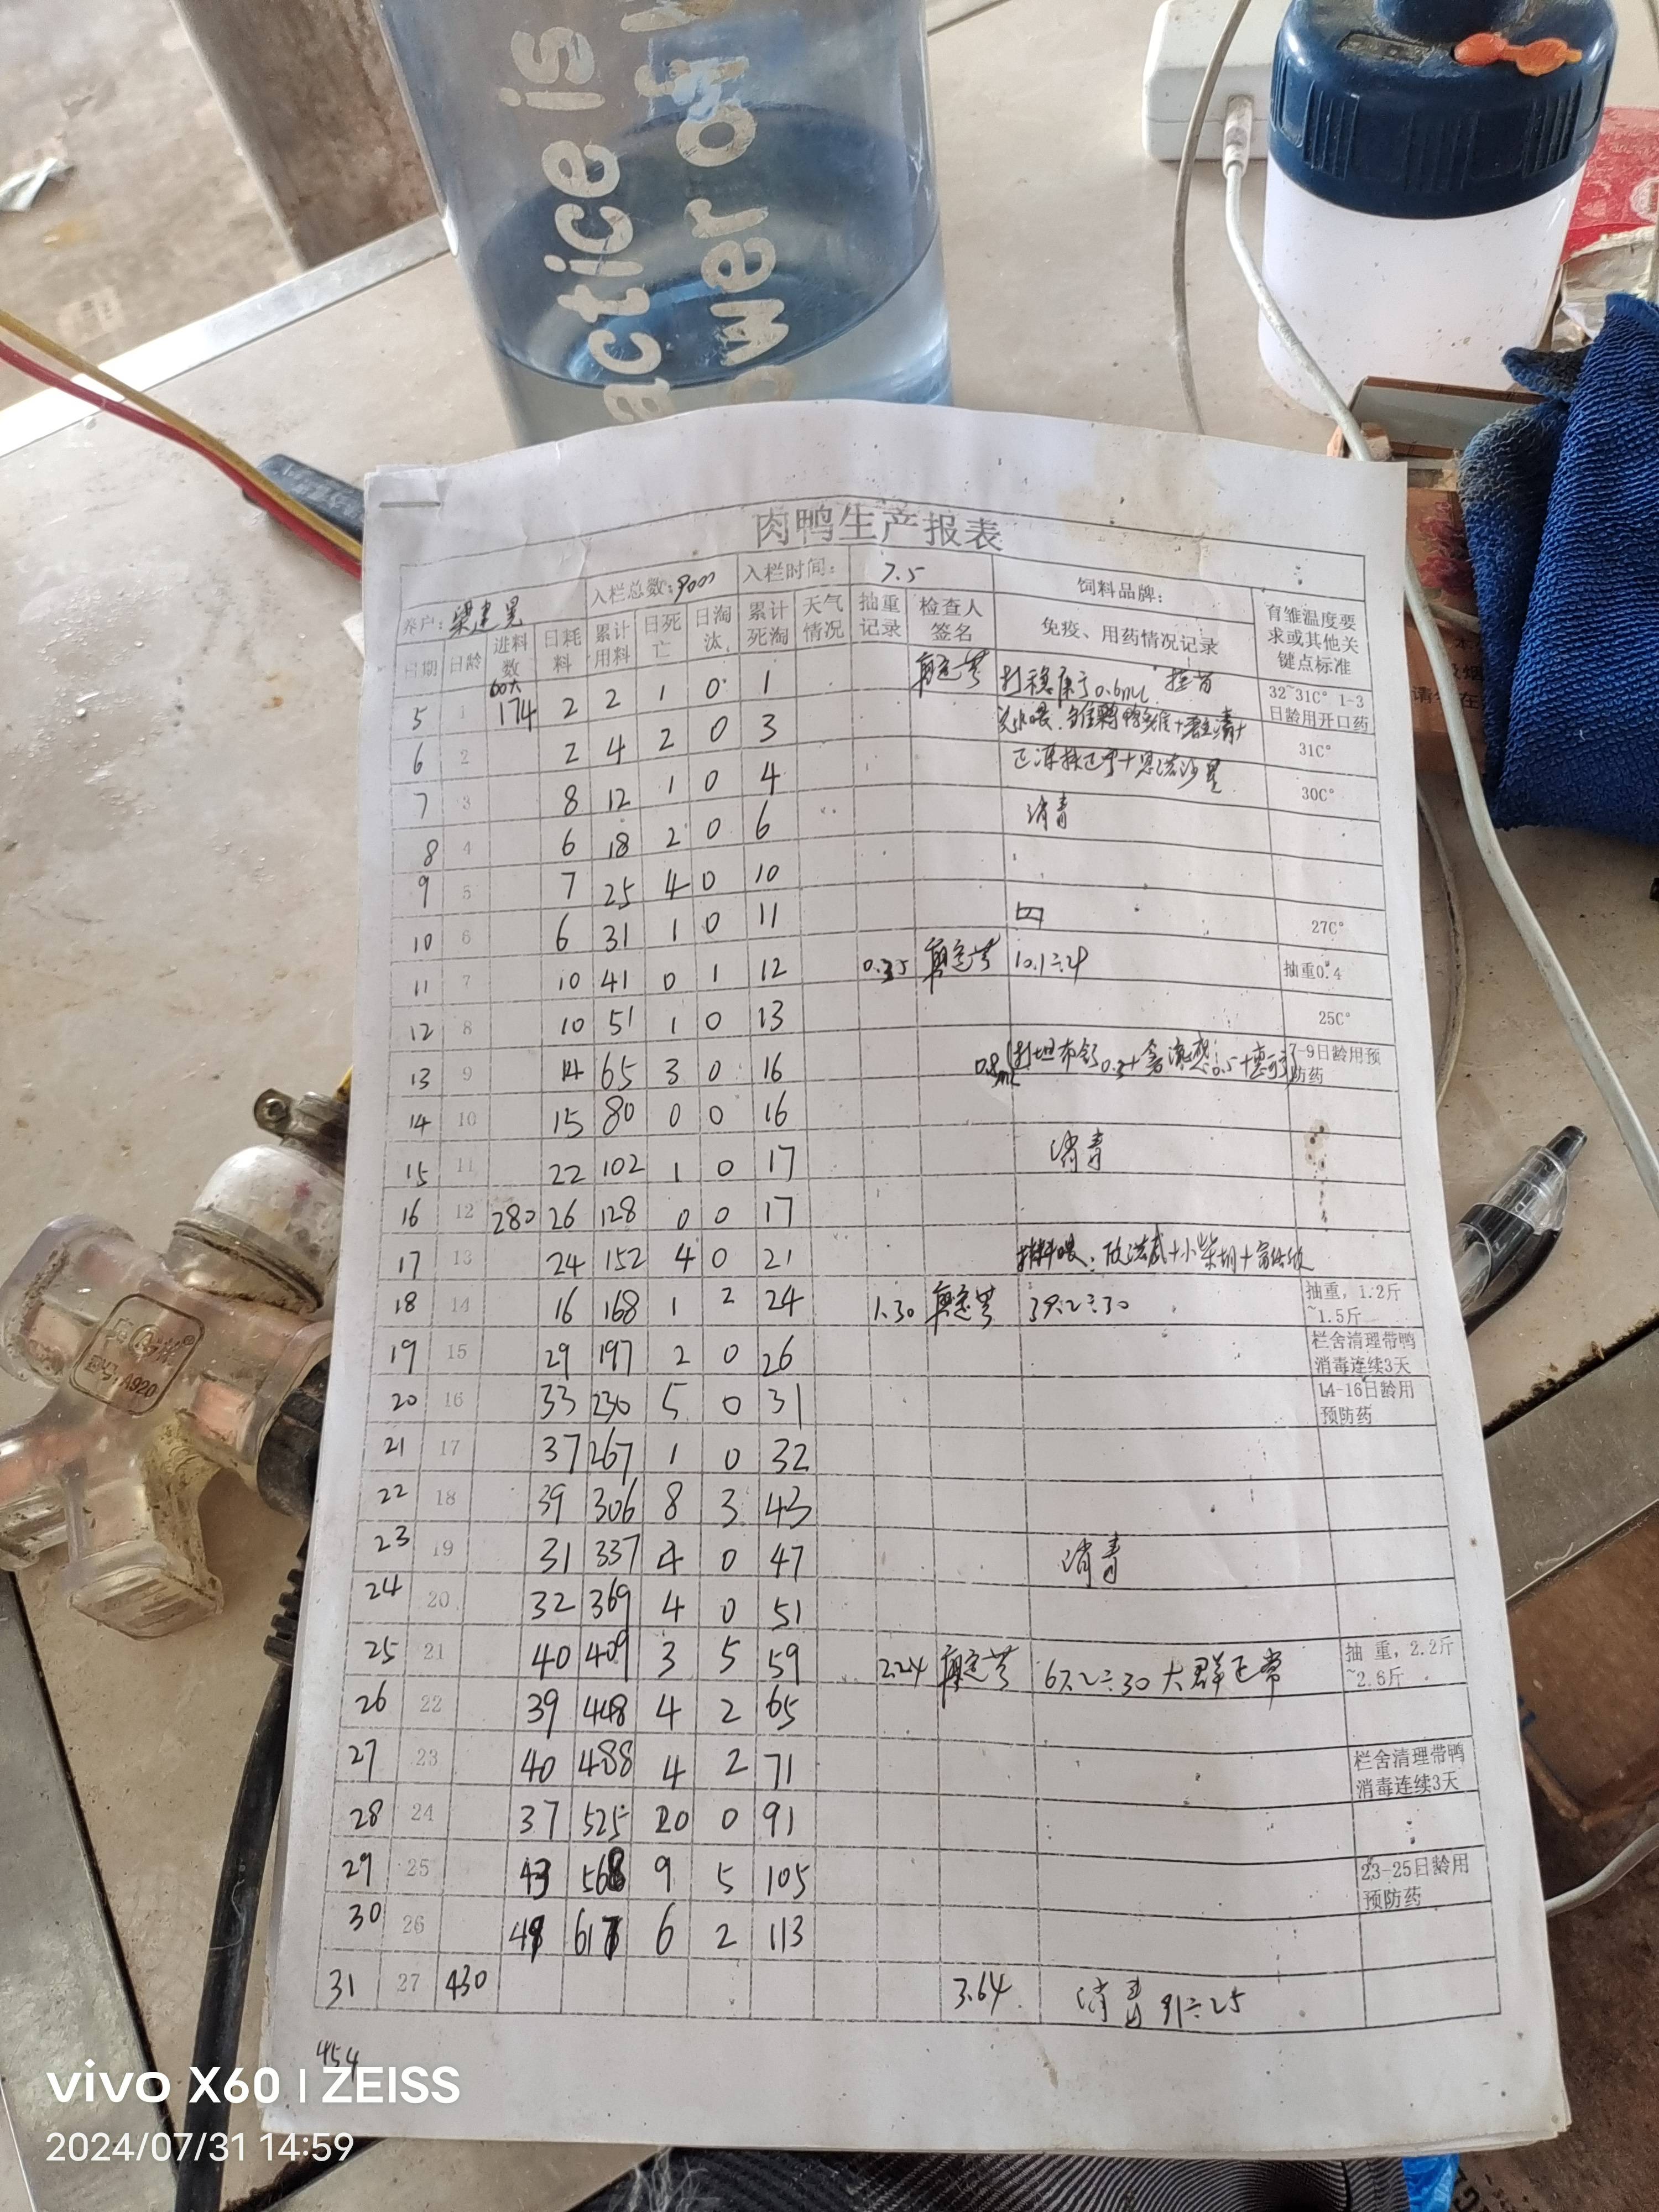 actice is
ower of
肉鸭生产报表
养户: 梁建 入栏总数: 9000 入栏时间: 7.5 饲料品牌: 育雏温度要求或其他关键点标准
日期 日龄 进料数 日耗料 累计用料 日死亡 日淘汰 累计死淘 天气情况 抽重记录 检查人签名 免疫、用药情况记录
5 1 174 2 2 1 0 1 0.6mL 32~31C° 1-3日龄用开口药
6 2 2 4 2 0 3 31C°
7 3 8 12 1 0 4 30C°
8 4 6 18 2 0 6 消毒
9 5 7 25 4 0 10
10 6 6 31 1 0 11 27C°
11 7 10 41 0 1 12 0.35 10.1÷29 抽重0.4
12 8 10 51 1 0 13 25C°
13 9 14 65 3 0 16 0.8mL 打坦布苏0.3+禽流感0.5+ 7-9日龄用预防药
14 10 15 80 0 0 16
15 11 22 102 1 0 17 消毒
16 12 280 26 128 0 0 17
17 13 24 152 4 0 21 拌料喂: +小柴胡+
18 14 16 168 1 2 24 1.30 39.2÷30 抽重, 1.2斤~1.5斤
19 15 29 197 2 0 26 栏舍清理带鸭消毒连续3天
20 16 33 230 5 0 31 14-16日龄用预防药
21 17 37 267 1 0 32
22 18 39 306 8 3 43
23 19 31 337 4 0 47 消毒
24 20 32 369 4 0 51
25 21 40 409 3 5 59 2.24 67.2÷30 大群正常 抽 重, 2.2斤~2.6斤
26 22 39 448 4 2 65
27 23 40 488 4 2 71 栏舍清理带鸭消毒连续3天
28 24 37 525 20 0 91
29 25 43 568 9 5 105 23-25日龄用预防药
30 26 49 617 6 2 113
31 27 430 3.64 消毒 91÷25
454
A920
vivo X60 | ZEISS
2024/07/31 14:59